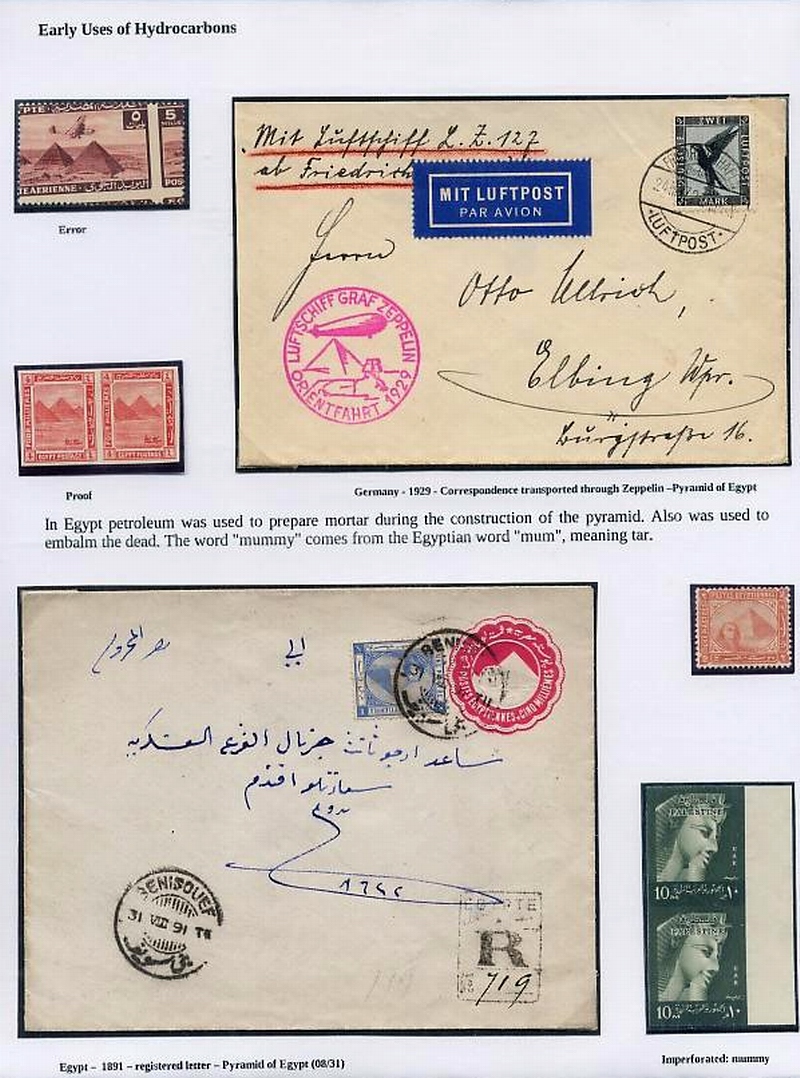 Early Uses of Hydrocarbons
5
POS
Error
Mit Luftschiff L. Z. 127
ab Friedrich
MIT LUFTPOST
PAR AVION
ZWEI
MARK
LUFTPOST
Herrn
Otto Ullrich,
Elbing Wpr.
Burgstraße 16.
LUFTSCHIFF GRAF ZEPPELIN
ORIENTFAHRT 1929
FOUR MILLIEMES
EGYPT POSTAGE
EGYPT POSTAGE
Proof
Germany - 1929 - Correspondence transported through Zeppelin –Pyramid of Egypt
In Egypt petroleum was used to prepare mortar during the construction of the pyramid. Also was used to
embalm the dead. The word "mummy" comes from the Egyptian word "mum", meaning tar.
الى
POSTES EGYPTIENNES CINQ MILLIEMES
BENI
مساعد ارجوثانت جنرال الفرع العسكريه
سعادتلو افندم
١٦٤٤
BENISOUEF
31 VIII 91
بنى سويف
R
719
PALESTINE
UAR
10
١٠
PALESTINE
UAR
10
١٠
Egypt – 1891 – registered letter – Pyramid of Egypt (08/31)
Imperforated: mummy